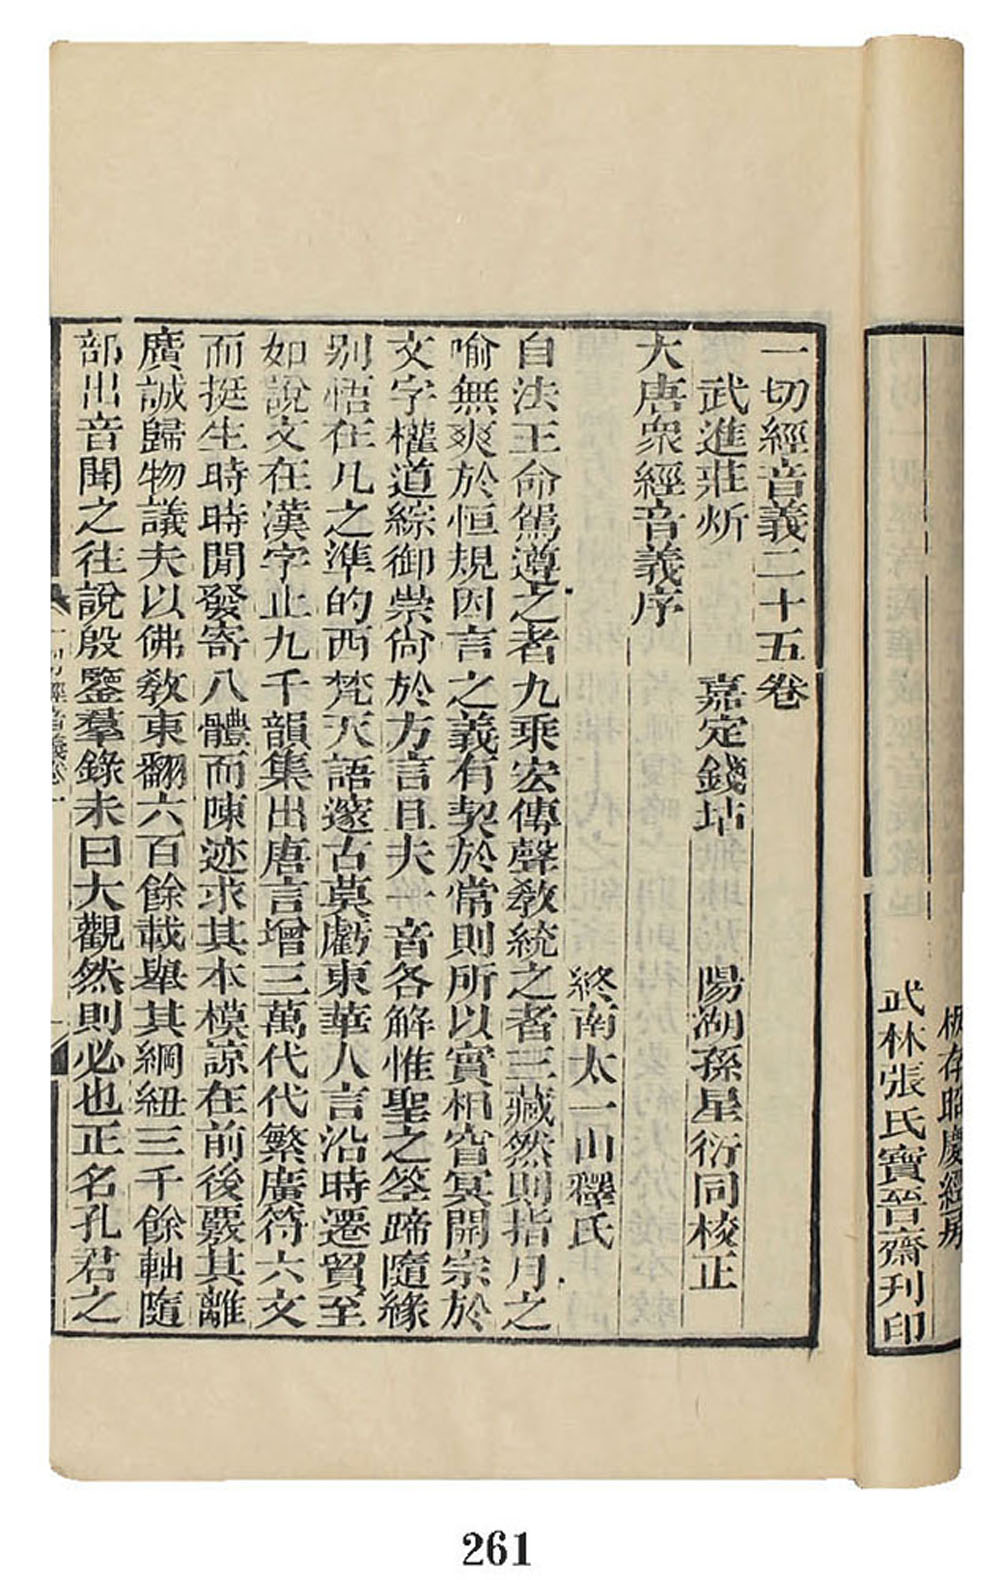 板存昭慶經房
武林張氏寶晉齋刊印
一切經音義二十五卷
武進莊炘　嘉定錢坫　陽湖孫星衍同校正
大唐衆經音義序
終南太一山釋氏
自法王命駕遵之者九乘宏傳聲教統之者三藏然則指月之
喻無爽於恒規因言之義有契於常則所以實相窅冥開宗於
文字權道綜御崇尙於方言且夫一音各解惟聖之筌蹄隨緣
别悟在凡之準的西梵天語邃古莫虧東華人言沿時遷貿至
如說文在漢字止九千韻集出唐言增三萬代代繁廣符六文
而挺生時時間發寄八體而陳迹求其本模諒在前後覈其離
廣誠歸物議夫以佛教東翻六百餘載舉其綱紐三千餘軸隨
部出音聞之往說殷鑒羣錄未曰大觀然則必也正名孔君之
一切經音義卷一
261